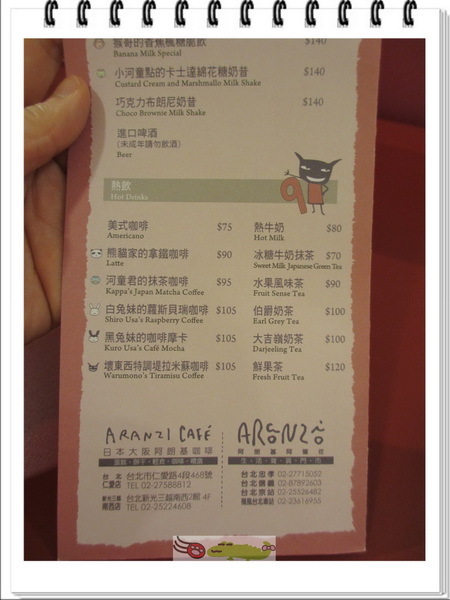 猴哥的香蕉楓糖脆飲 $140
Banana Milk Special
小河童點的卡士達綿花糖奶昔 $140
Custard Cream and Marshmallo Milk Shake
巧克力布朗尼奶昔 $140
Choco Brownie Milk Shake
進口啤酒
(未成年請勿飲酒)
Beer
熱飲
Hot Drinks
美式咖啡 $75
Americano
熊貓家的拿鐵咖啡 $90
Latte
河童君的抹茶咖啡 $95
Kappa's Japan Matcha Coffee
白兔妹的蘿斯貝瑞咖啡 $105
Shiro Usa's Raspberry Coffee
黑兔妹的咖啡摩卡 $105
Kuro Usa's Café Mocha
壞東西特調堤拉米蘇咖啡 $105
Warumono's Tiramisu Coffee
熱牛奶 $80
Hot Milk
冰糖牛奶抹茶 $70
Sweet Milk Japanese Green Tea
水果風味茶 $90
Fruit Sense Tea
伯爵奶茶 $100
Earl Grey Tea
大吉嶺奶茶 $100
Darjeeling Tea
鮮果茶 $120
Fresh Fruit Tea
ARANZI CAFÉ
日本大阪阿朗基咖啡
台北仁愛店 台北市仁愛路4段468號
TEL 02-27588812
新光三越南西店 台北新光三越南西2館 4F
TEL 02-22524608
ARONZO
阿朗基阿龍佐
生‧活‧雜‧貨‧門‧市
台北忠孝 02-27715052
台北信義 02-87892603
台北京站 02-25526482
02-23616955